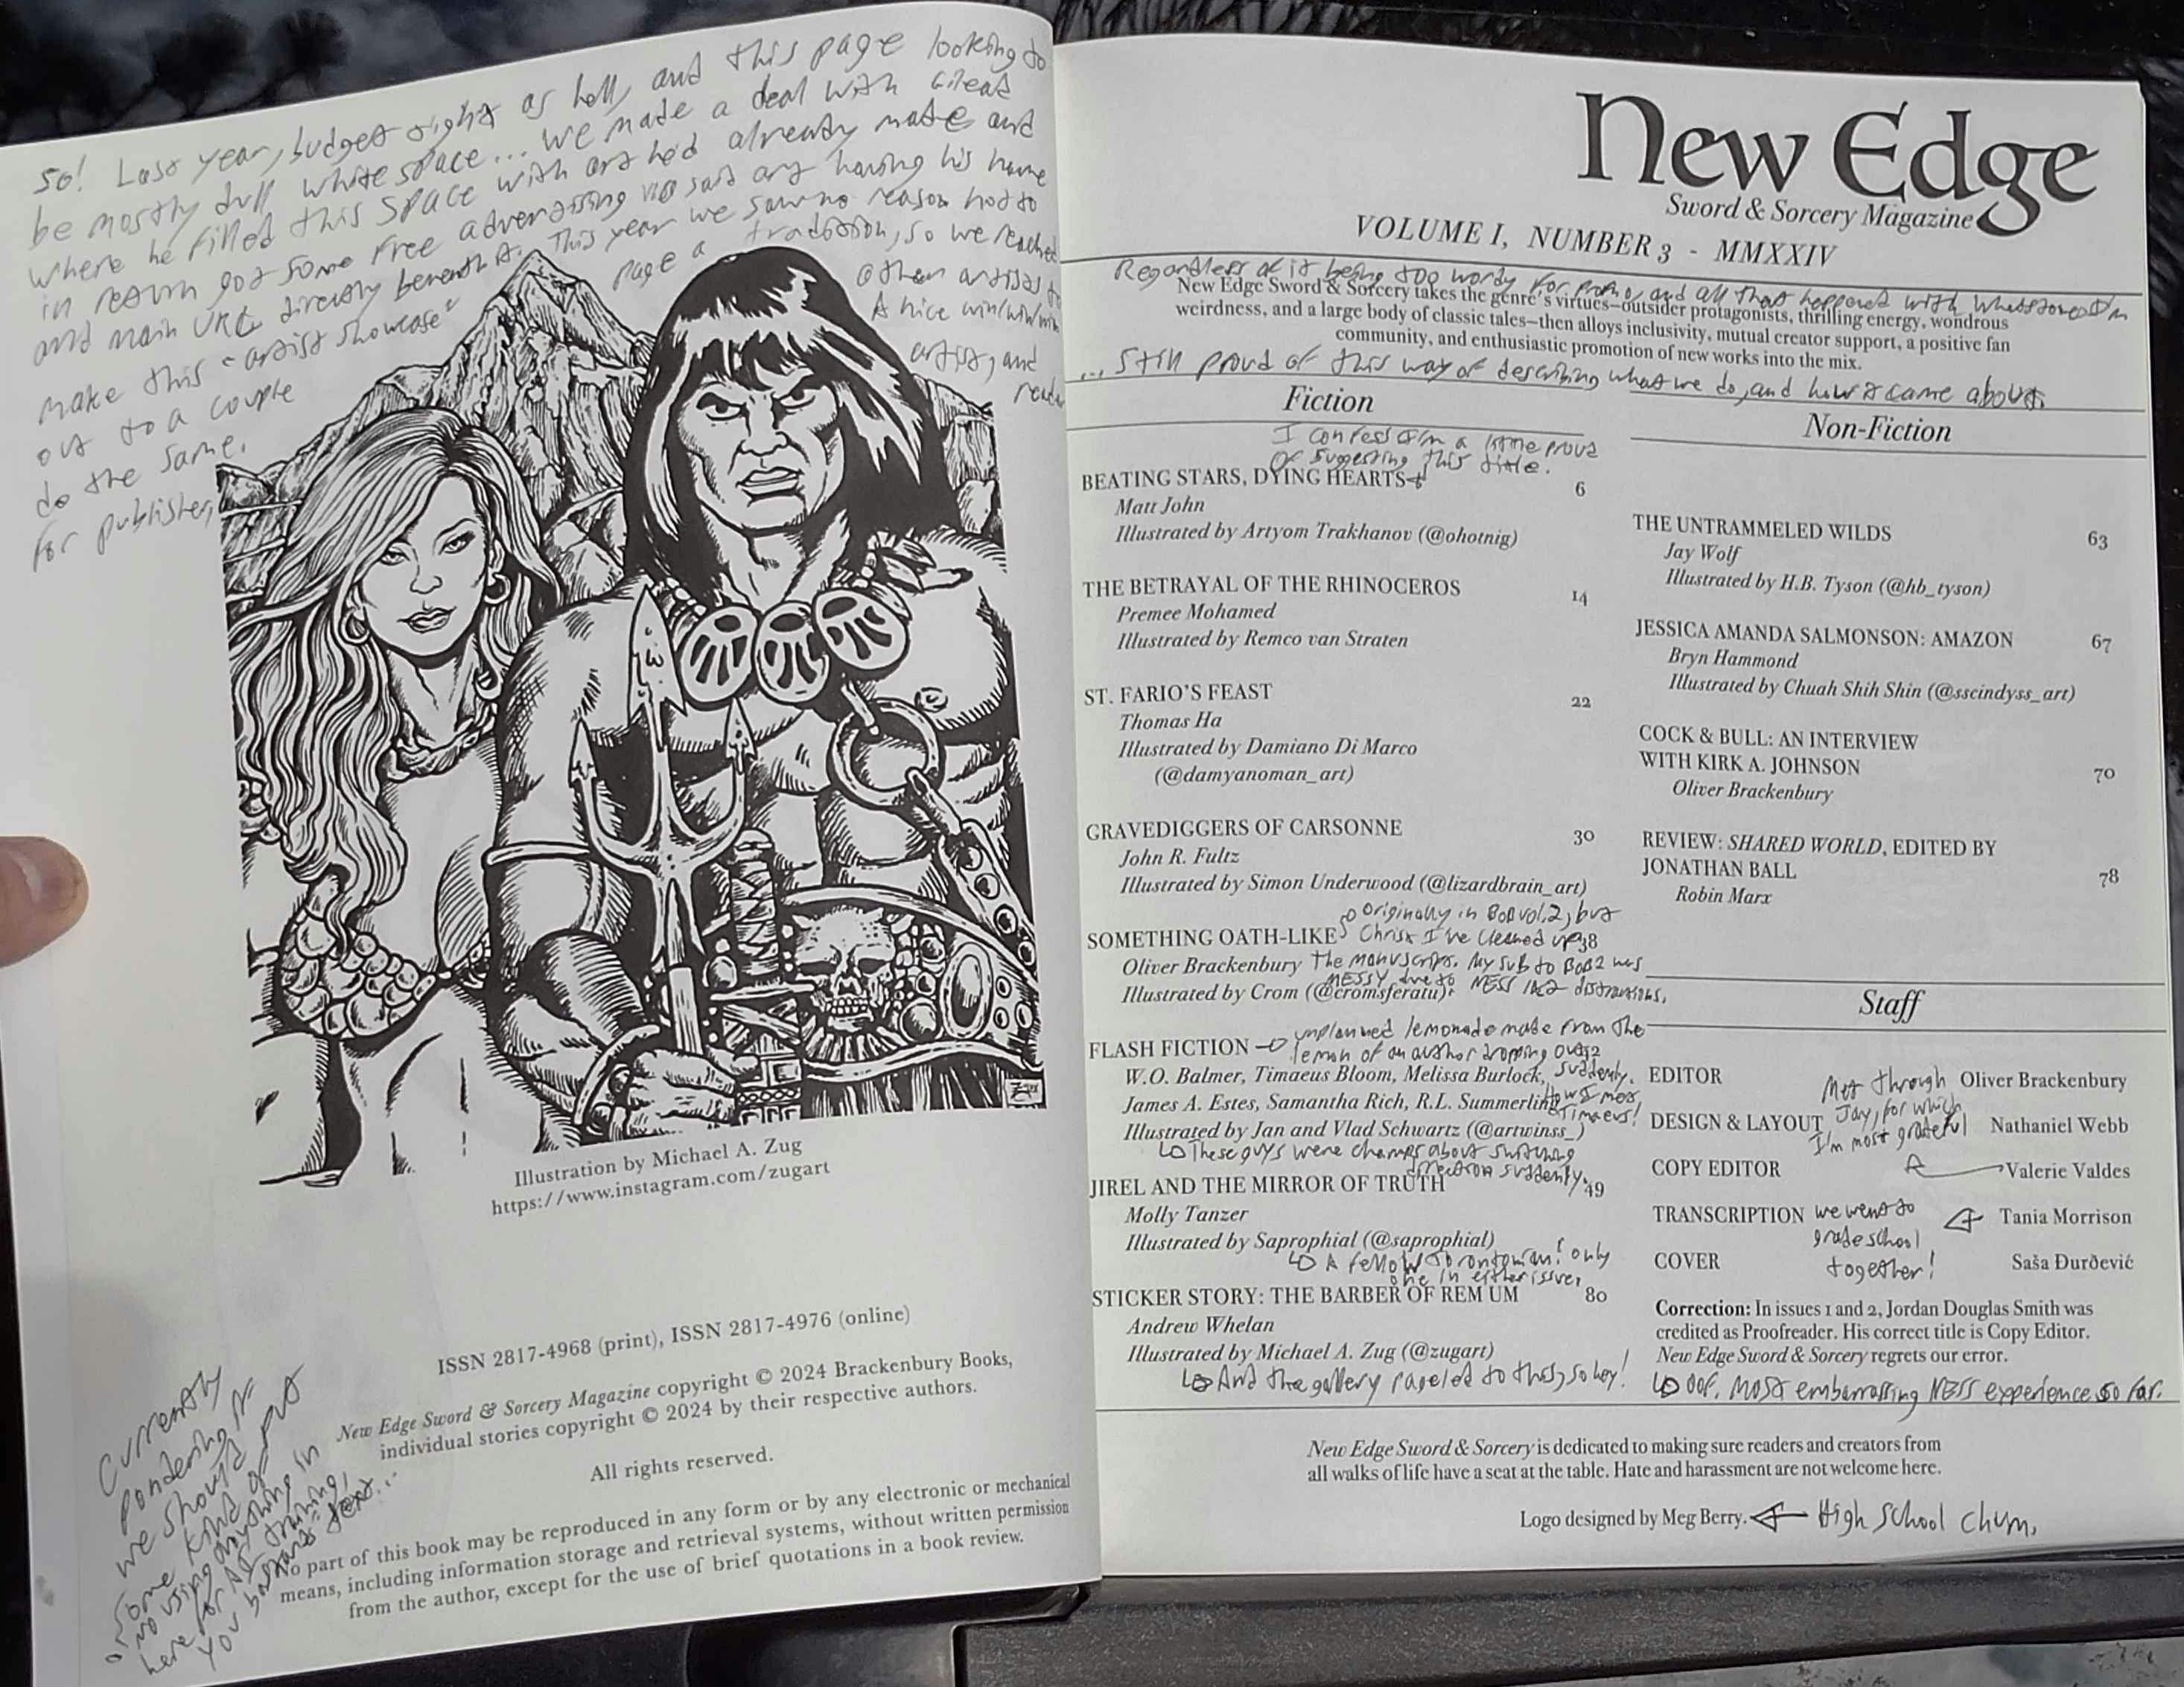 So! Last year, budget tight as hell, and this page looking to
be mostly dull white space... we made a deal with Gilead
where he filled this space with art he'd already made and
in return got some free advertising via said art having his name
and main URL directly beneath it. This year we saw no reason not to
make this "artist showcase" page a tradition, so we reached
out to a couple other artists to
do the same. A nice win/win/win
for publisher, artist, and
reader
Illustration by Michael A. Zug
https://www.instagram.com/zugart
ISSN 2817-4968 (print), ISSN 2817-4976 (online)
New Edge Sword & Sorcery Magazine copyright © 2024 Brackenbury Books,
individual stories copyright © 2024 by their respective authors.
All rights reserved.
No part of this book may be reproduced in any form or by any electronic or mechanical
means, including information storage and retrieval systems, without written permission
from the author, except for the use of brief quotations in a book review.
Currently
pondering if
we should put
some kind of
"no using anything in
here for AI training,
you bastards" text...
New Edge
Sword & Sorcery Magazine
VOLUME I, NUMBER 3 - MMXXIV
Regardless of it being too wordy for promo, and all that happened with
New Edge Sword & Sorcery takes the genre's virtues–outsider protagonists, thrilling energy, wondrous
weirdness, and a large body of classic tales–then alloys inclusivity, mutual creator support, a positive fan
community, and enthusiastic promotion of new works into the mix.
... Still proud of this way of describing what we do, and how it came about.
Fiction
I confess I'm a little proud
of suggesting this title.
BEATING STARS, DYING HEARTS 6
Matt John
Illustrated by Artyom Trakhanov (@ohotnig)
THE BETRAYAL OF THE RHINOCEROS 14
Premee Mohamed
Illustrated by Remco van Straten
ST. FARIO'S FEAST 22
Thomas Ha
Illustrated by Damiano Di Marco
(@damyanoman_art)
GRAVEDIGGERS OF CARSONNE 30
John R. Fultz
Illustrated by Simon Underwood (@lizardbrain_art)
Originally in BoB vol. 2, but
SOMETHING OATH-LIKE Christ I've cleaned up 38
Oliver Brackenbury the manuscript. My sub to BoB2 was
MESSY due to NESS 1&2 distractions.
Illustrated by Crom (@cromsferatu)
unplanned lemonade made from the
FLASH FICTION lemon of an author dropping out 42
W.O. Balmer, Timaeus Bloom, Melissa Burlock, suddenly.
James A. Estes, Samantha Rich, R.L. Summerling How I met
Timaeus!
Illustrated by Jan and Vlad Schwartz (@artwinss_)
These guys were champs about switching
direction suddenly.
JIREL AND THE MIRROR OF TRUTH 49
Molly Tanzer
Illustrated by Saprophial (@saprophial)
A fellow Torontonian! Only
one in either issue,
STICKER STORY: THE BARBER OF REM UM 80
Andrew Whelan
Illustrated by Michael A. Zug (@zugart)
And the gallery page led to this, so hey!
Non-Fiction
THE UNTRAMMELED WILDS 63
Jay Wolf
Illustrated by H.B. Tyson (@hb_tyson)
JESSICA AMANDA SALMONSON: AMAZON 67
Bryn Hammond
Illustrated by Chuah Shih Shin (@sscindyss_art)
COCK & BULL: AN INTERVIEW
WITH KIRK A. JOHNSON 70
Oliver Brackenbury
REVIEW: SHARED WORLD, EDITED BY
JONATHAN BALL 78
Robin Marx
Staff
EDITOR Oliver Brackenbury
DESIGN & LAYOUT Nathaniel Webb
Met through
Jay, for which
I'm most grateful
COPY EDITOR Valerie Valdes
TRANSCRIPTION Tania Morrison
we went to
grade school
together!
COVER Saša Đurđević
Correction: In issues 1 and 2, Jordan Douglas Smith was
credited as Proofreader. His correct title is Copy Editor.
New Edge Sword & Sorcery regrets our error.
Oof. Most embarrassing NESS experience so far.
New Edge Sword & Sorcery is dedicated to making sure readers and creators from
all walks of life have a seat at the table. Hate and harassment are not welcome here.
Logo designed by Meg Berry. High school chum.